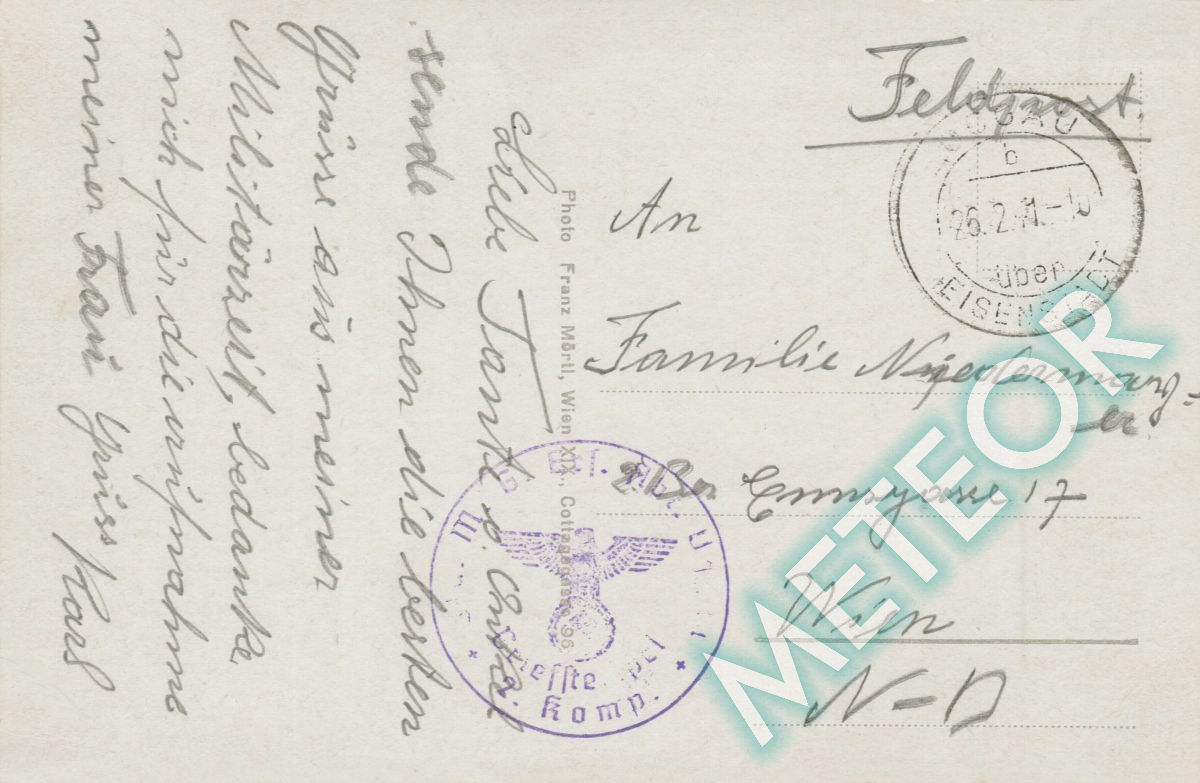 Feldpost.
b
26.2.41.-10
über
EISENSTADT
An
Familie Niedermayer
Ennsgasse 17
Wien
N-D
Photo Franz Mörtl, Wien XIX., Cottagegasse 96
Liebe Tante u.
sende Ihnen die besten
Grüsse aus meiner
Militärzeit, bedanke
mich für die aufnahme
meiner Frau Gruss Karl
Komp.
METEOR